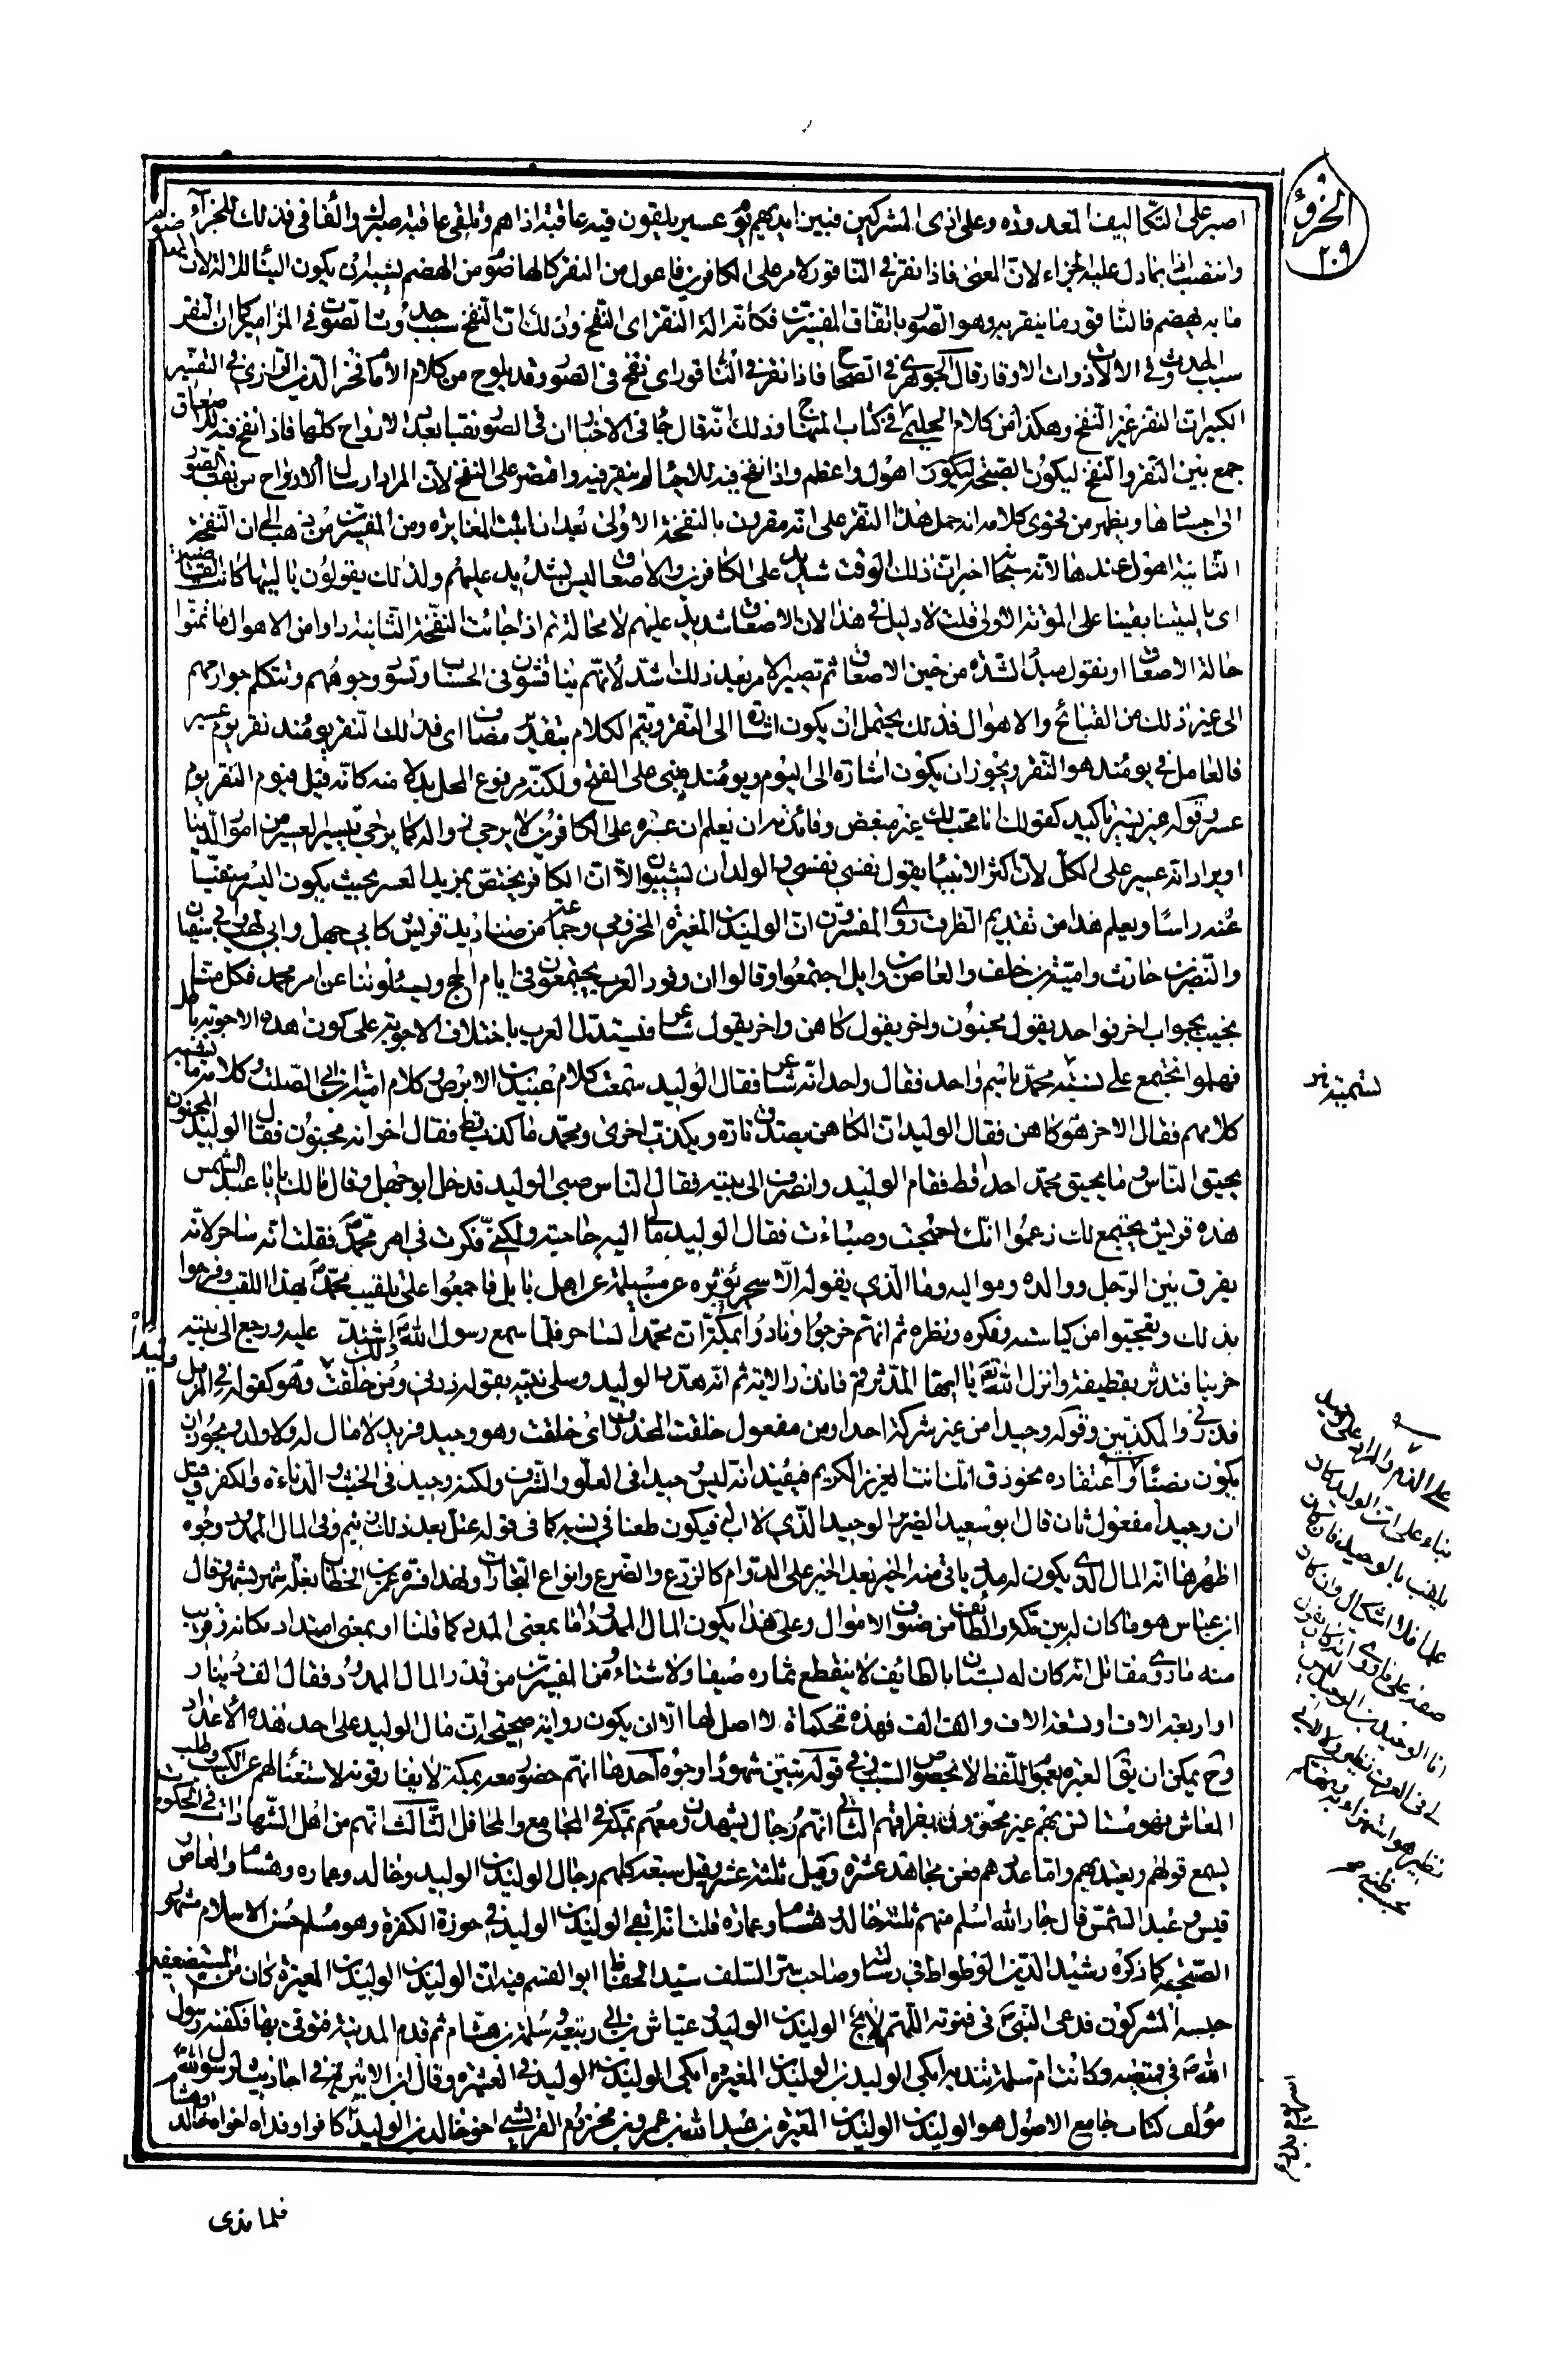 الجزؤ
٢٠٩
اصبر على التكاليف المعدودة وعلى اذى المشركين فبين ايديهم يوم عسير يلقون فيه عاقبة اذاهم وتلقى عاقبة صبرك والفا فى فذلك للجزاء
وانتصب اذا بما دل عليه الجزاء لان المعنى فاذا نقر فى الناقور عسر الامر على الكافرين فاعول من النقر كالهاضوم من الهضم يشبه ان يكون البناء للآلة لان
ما به يهضم فالناقور ما ينقر به وهو الصور باتفاق المفسرين فكانه آلة النقر اى النفخ وذلك ان النفخ سبب حدوث الصوت فى المزامير كما ان النقر
سبب الحدوث فى الآلات ذوات الاوتار قال الجوهرى فى الصحاح فاذا نقر فى الناقور اى نفخ فى الصور وقد يلوح من كلام الامام فخر الدين الرازى فى التفسير
الكبير ان النقر غير النفخ وهكذا من كلام الحليمى فى كتاب المنهاج وذلك انه قال جاء فى الاخبار ان فى الصور نقبا بعدد الارواح كلها فاذا نفخ فيه للاصعاق
جمع بين النقر والنفخ ليكون الصيحة اهول واعظم واذا نفخ فيه للاحياء لم ينقر فيه واقتصر على النفخ لان المراد ارسال الارواح من نقب الصور
الى اجسادها ويظهر من فحوى كلامه انه حمل هذا النقر على انه مقرون بالنفخة الاولى بعد ان اثبت المغايرة ومن المفسرين من ذهب الى ان النفخة
الثانية اهول عندها لانه سبحانه اخبر ان ذلك الوقت شديد على الكافرين والاصعاق ليس بشديد عليهم ولذلك يقولون يا ليتها كانت القاضية
اى يا ليتنا بقينا على الموتة الاولى قلت لا دليل فى هذا لان الاصعاق شديد عليهم لا محالة ثم اذا جاءت النفخة الثانية راوا من الاهوال ما تمنوا
حالة الاصعاق او نقول مبدأ الشدة من حين الاصعاق ثم تصير الامر بعد ذلك اشد لانهم يناقشون فى الحساب وتسود وجوههم وتتكلم جوارحهم
الى غير ذلك من القبائح والاهوال فذلك يحتمل ان يكون اشارة الى النقر ويتم الكلام بتقدير مضاف اى فذلك النقر يومئذ نقر يوم عسير
فالعامل فى يومئذ هو النقر ويجوز ان يكون اشارة الى اليوم ويومئذ مبنى على الفتح ولكنه مرفوع المحل بدلا منه كانه قيل فيوم النقر يوم
عسر وقوله غير يسير تاكيد كقولك انا محب لك غير مبغض وفائدته ان نعلم ان عسره على الكافرين لا يرجى زواله كما يرجى تيسير العسير من امور الدنيا
او يراد انه عسير على الكل لان اكثر الانبياء يقول نفسى نفسى والولدان يشيبون الا ان الكافر يختص بمزيد العسر بحيث يكون اليسر منفيا
عنه راسا ويعلم هذا من تقديم الظرف روى المفسرون ان الوليد بن المغيرة المخزومى وجماعة من صناديد قريش كابى جهل وابى لهب وابى سفيان
والنضر بن حارث وامية بن خلف والعاص بن وايل اجتمعوا وقالوا ان وفود العرب يجتمعون فى ايام الحج ويسئلوننا عن امر محمد فكل منا
يجيب بجواب اخر فواحد يقول مجنون واخر يقول كاهن واخر يقول شاعر فتستدل العرب باختلاف الاجوبة على كون هذه الاجوبة باطلة
فهلموا نجتمع على تسمية محمد باسم واحد فقال واحد انه شاعر فقال الوليد سمعت كلام عبيد بن الابرص وكلام امية بن ابى الصلت وكلامه ما يشبه
كلامهم فقال الاخر هو كاهن فقال الوليد ان الكاهن يصدق تارة ويكذب اخرى ومحمد ما كذب قط فقال اخر انه مجنون فقال الوليد المجنون
يخيف الناس وما يخيف محمد احدا قط فقام الوليد وانصرف الى بيته فقال الناس صبى الوليد فدخل ابو جهل وقال مالك يا ابا عبد الشمس
هذه قريش يجتمع لك زعموا انك احتجت وصبأت فقال الوليد مالى اليه حاجة ولكنى فكرت فى امر محمد فقلت انه ساحر لانه
يفرق بين الرجل ووالده ومواليه وما الذى يقوله الا سحر يؤثره عن مسيلمة عن اهل بابل فاجمعوا على تلقيب محمد بهذا اللقب وفرحوا
بذلك وتعجبوا من كياسته وفكره ونظره ثم انهم خرجوا ونادوا بمكة ان محمدا لساحر فلما سمع رسول الله ذلك اشتد عليه ورجع الى بيته
حزينا فتدثر بقطيفة وانزل الله تعالى يا ايها المدثر قم فانذر الآية ثم انه هدد الوليد وسلى نبيه بقوله ذرنى ومن خلقت وهو كقوله فى المزمل
فذرنى والمكذبين وقوله وحيدا من غير شركة احد او من مفعول خلقت المحذوف اى خلقت وهو وحيد فريد لا مال له ولا ولد ويجوز ان
يكون نصبا واعتقاده نحو ذق انك انت العزيز الكريم فيفيد انه ليس وحيدا فى العلو والشرف ولكنه وحيد فى الخبث والدناءة والكفر وقيل
ان وحيدا مفعول ثان قال ابو سعيد الضرير الوحيد الذى لا اب له فيكون طعنا فى نسبه كما فى قوله عتل بعد ذلك زنيم وفى المال الممدود وجوه
اظهرها انه المال الذى يكون له مدد ياتى منه الخير بعد الخير على الدوام كالزرع والضرع وانواع التجارات ولهذا فسره عمر بن الخطاب بغلة شهر بشهر وقال
ابن عباس هو ما كان له بين مكة والطائف من صنوف الاموال وعلى هذا يكون المال الممدود اما بمعنى المدد كما قلنا او بمعنى امتداد مكانه وقريب
منه ما روى مقاتل انه كان له بستان بالطائف لا ينقطع ثماره صيفا ولا شتاء ومن المفسرين من قدر المال الممدود فقال الف دينار
او اربعة الاف او تسعة الاف والف الف فهذه تحكمات لا اصل لها الا ان يكون رواية صحيحة ان مال الوليد على احد هذه الاعداد
وح يمكن ان يق العبرة بعموم اللفظ لا بخصوص السبب وفى قوله بنين شهودا وجوه احدها انهم حضور معه بمكة لا يفارقونه لاستغنائهم عن الكسب وطلب
المعاش فهو مستانس بهم غير محزون بفراقهم الثانى انهم رجال يشهدون معهم بمكة فى المجامع والمحافل الثالث انهم من اهل الشهادات فى الحكومات
يسمع قولهم ويعتد بهم واما عددهم فعن مجاهد عشرة وقيل ثلثة عشر وقيل سبعة كلهم رجال الوليد بن الوليد وخالد وعمارة وهشام والعاص
قيس وعبد الشمس قال جار الله اسلم منهم ثلثة خالد وهشام وعمارة قلنا تذاتع الوليد بن الوليد فى حوزة الكفرة وهو مسلم حسن الاسلام مشهور
الصحبة كما ذكره رشيد الدين الوطواط فى رسالته وصاحب سير السلف سيد الحفاظ ابو القسم فيه ان الوليد بن الوليد بن المغيرة كان من المستضعفين
حبسه المشركون فدعى النبى فى قنوته اللهم انج الوليد بن الوليد وعياش بن ابى ربيعة وسلمة بن هشام ثم قدم المدينة فتوفى بها فكفنه رسول
الله فى قميصه وكانت ام سلمة تندبه ابكى الوليد بن الوليد بن المغيرة ابكى الوليد بن الوليد فى العشيرة وقال ابن الاثير فى احاديث رسول الله
مؤلف كتاب جامع الاصول هو الوليد بن الوليد بن المغيرة بن عبد الله بن عمرو بن مخزوم القرشى اخو خالد بن الوليد كافرا وفداه اخواه خالد وهشام
لتسميته نبيه
على الذم والمراد على زعمه
بناء على ان الوليد كان
يلقب بالوحيد فان كان
علما فلا اشكال وان كان
صفة على ما روى انه كان يقول
انا الوحيد بن الوحيد ليس
لى فى العرب نظير ولا لابى
نظير هو استهزاء به وتهكم
بحسب ظنه صح
اسر يوم بدر
فلما فدى